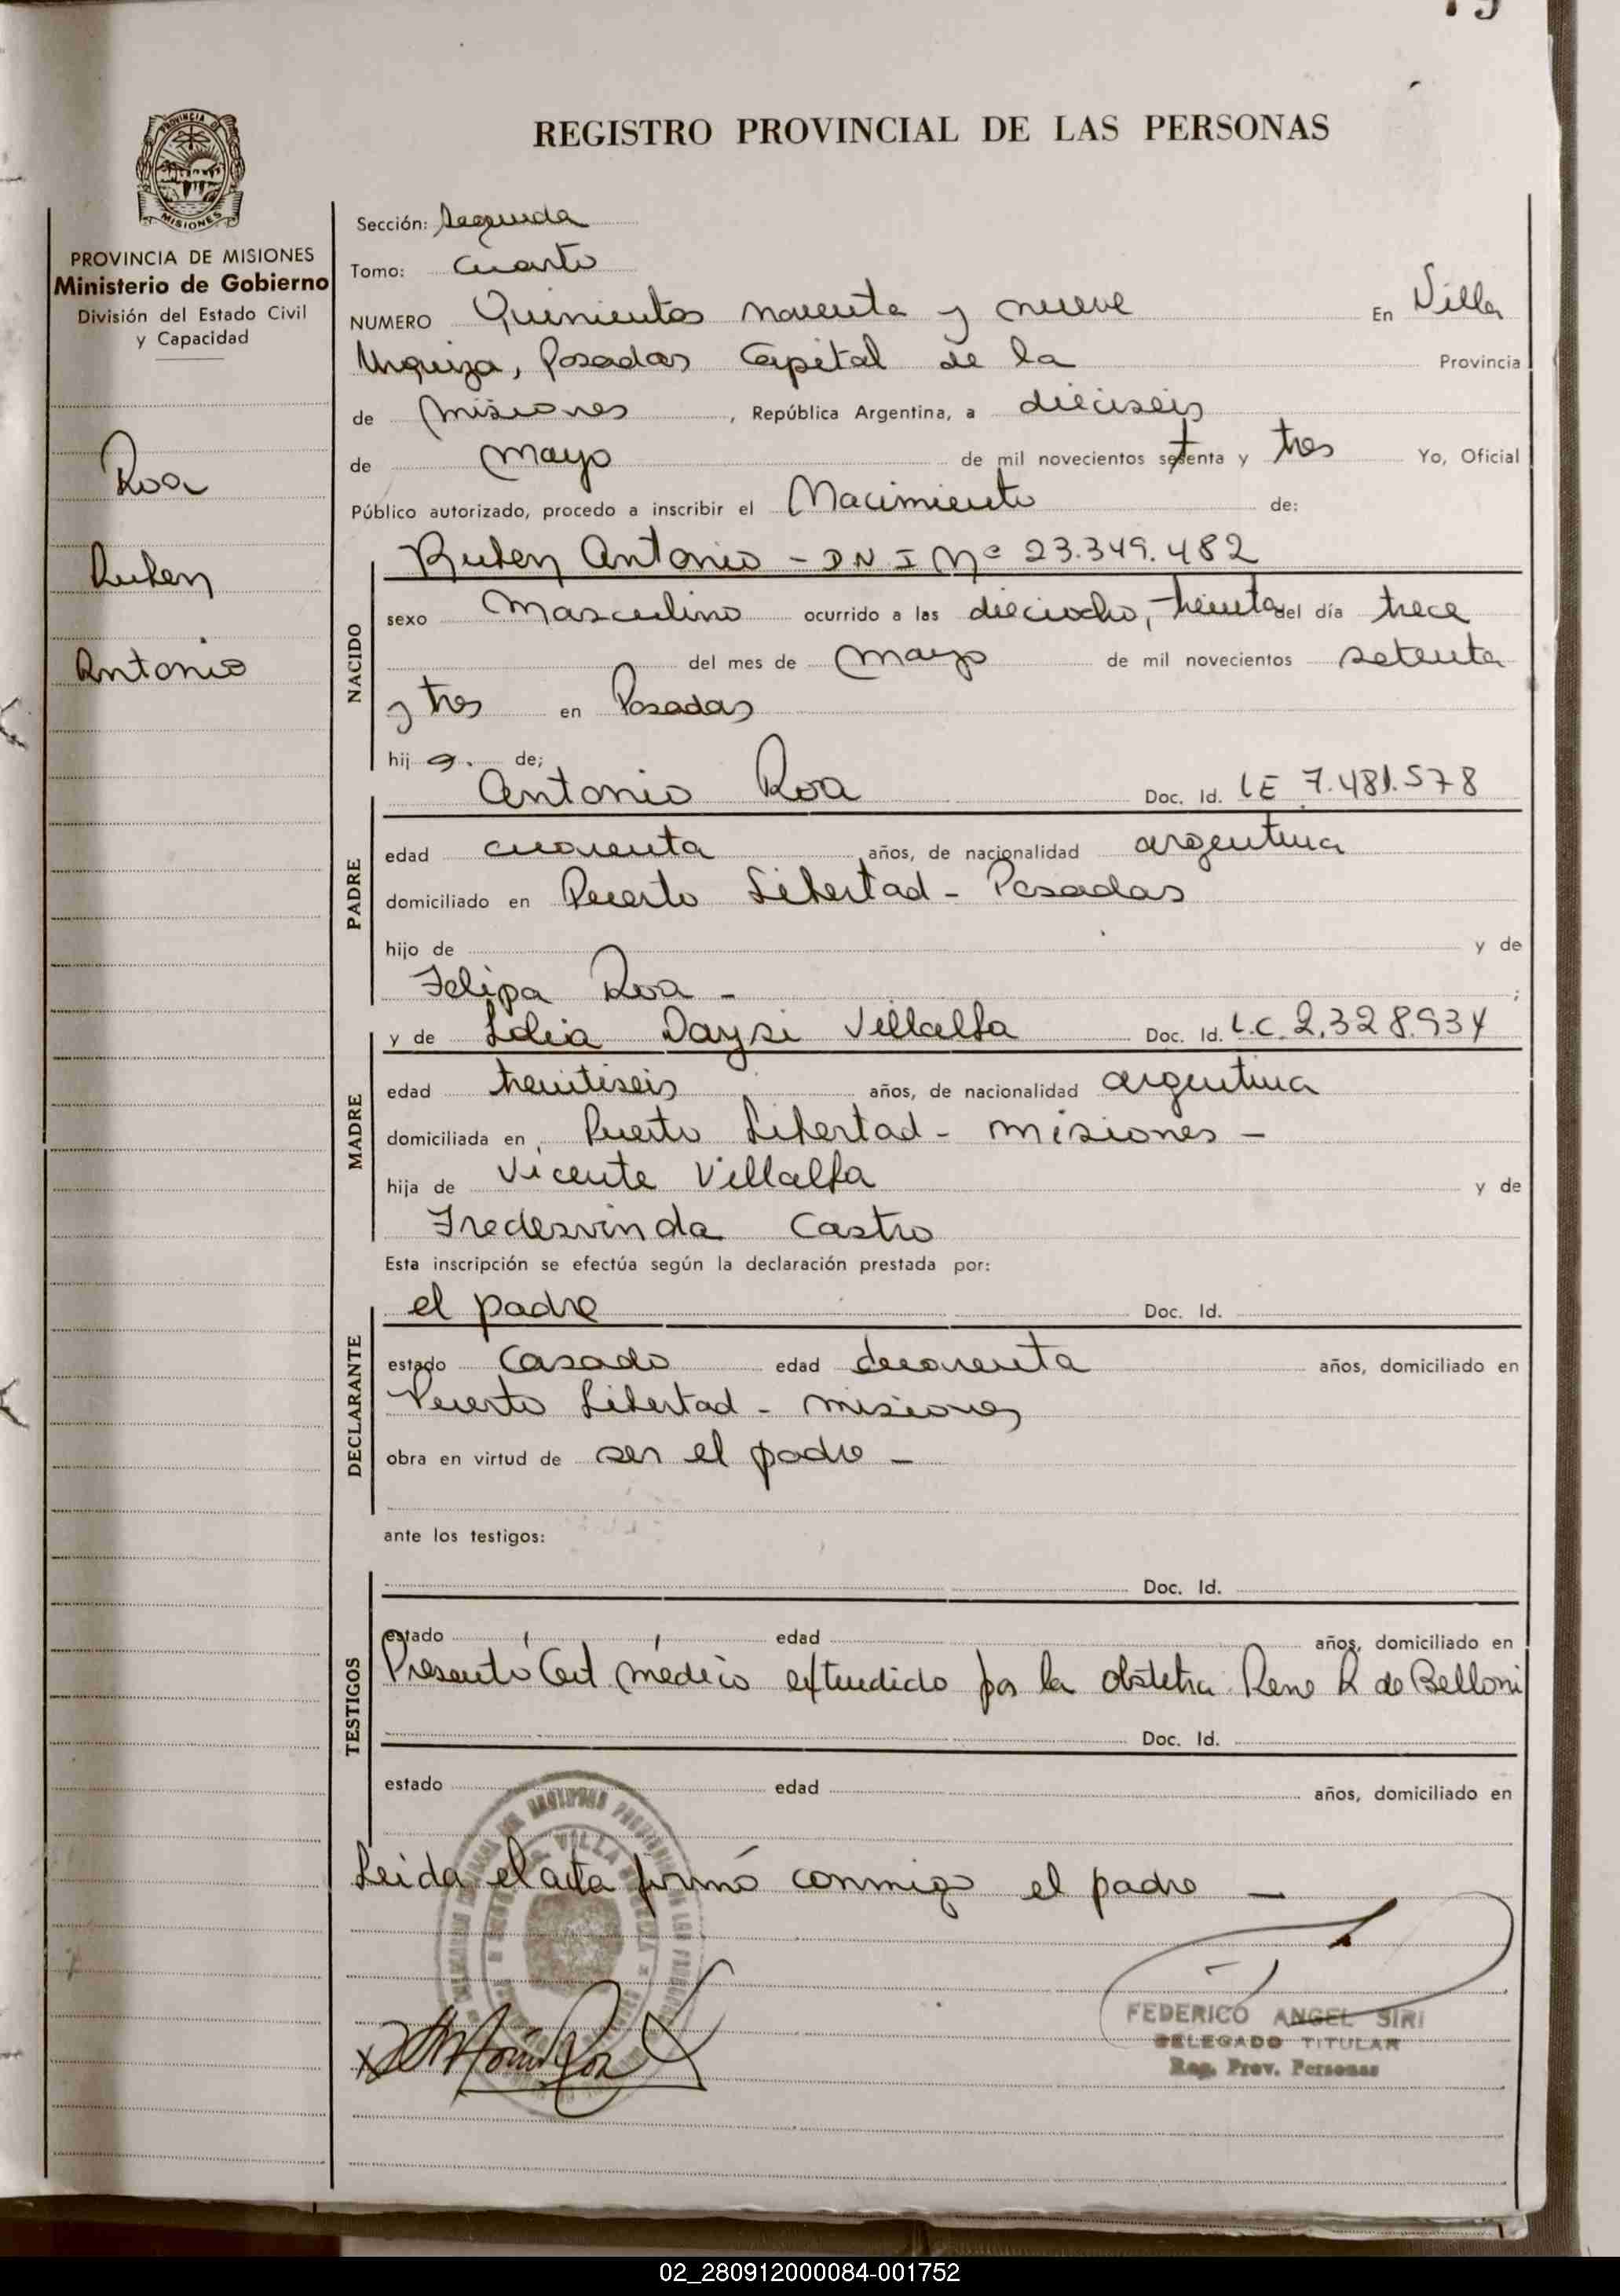 REGISTRO PROVINCIAL DE LAS PERSONAS
PROVINCIA DE
MISIONES
PROVINCIA DE MISIONES
Ministerio de Gobierno
División del Estado Civil
y Capacidad
Roa
Ruben
Antonio
Sección: Segunda
Tomo: Cuarto
NUMERO Quinientos noventa y nueve En Villa
Urquiza, Posadas Capital de la Provincia
de Misiones, República Argentina, a dieciseis
de mayo de mil novecientos setenta y tres Yo, Oficial
Público autorizado, procedo a inscribir el Nacimiento de:
NACIDO
Ruben Antonio - DNI Nº 23.349.482
sexo Masculino ocurrido a las dieciocho, treinta del día trece
del mes de mayo de mil novecientos setenta
y tres en Posadas
hijo. de;
PADRE
Antonio Roa Doc. Id. LE 7.481.578
edad cuarenta años, de nacionalidad argentina
domiciliado en Puerto Libertad - Posadas
hijo de y de
Felipa Roa - ;
MADRE
y de Lidia Daysi Villalba Doc. Id. L.C. 2.328.934
edad treintiseis años, de nacionalidad argentina
domiciliada en Puerto Libertad - misiones -
hija de Vicente Villalba y de
Fredesvinda Castro
Esta inscripción se efectúa según la declaración prestada por:
DECLARANTE
el padre Doc. Id.
estado Casado edad cuarenta años, domiciliado en
Puerto Libertad - misiones
obra en virtud de ser el padre -
ante los testigos:
TESTIGOS
Doc. Id.
estado edad años, domiciliado en
Presentó Cert médico extendido por la obstetra Rene R de Belloni
Doc. Id.
estado edad años, domiciliado en
Leida el acta firmó conmigo el padre -
Antonio Roa
FEDERICO ANGEL SIRI
DELEGADO TITULAR
Reg. Prov. Personas
02_280912000084-001752